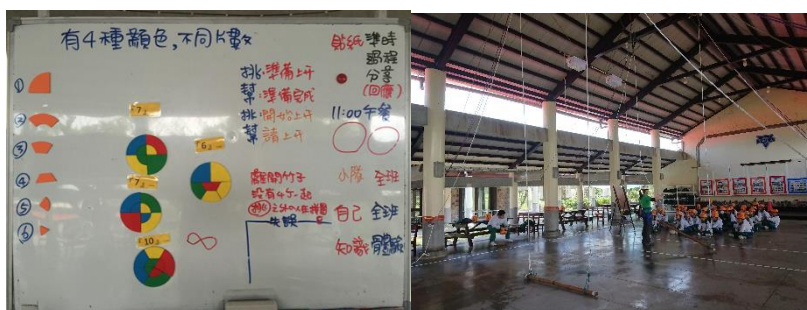 有4種顏色,不同片數
①
②
③
④
⑤
⑥
7片
6片
7片
10片
挑:準備上千
幫:準備完成
挑:開始上千
幫:請上千
離開竹子
沒有4个一起
失誤
貼紙 準時
過程
分享
(回應)
11:00午餐
小隊 全班
自己 全班
知識 體驗